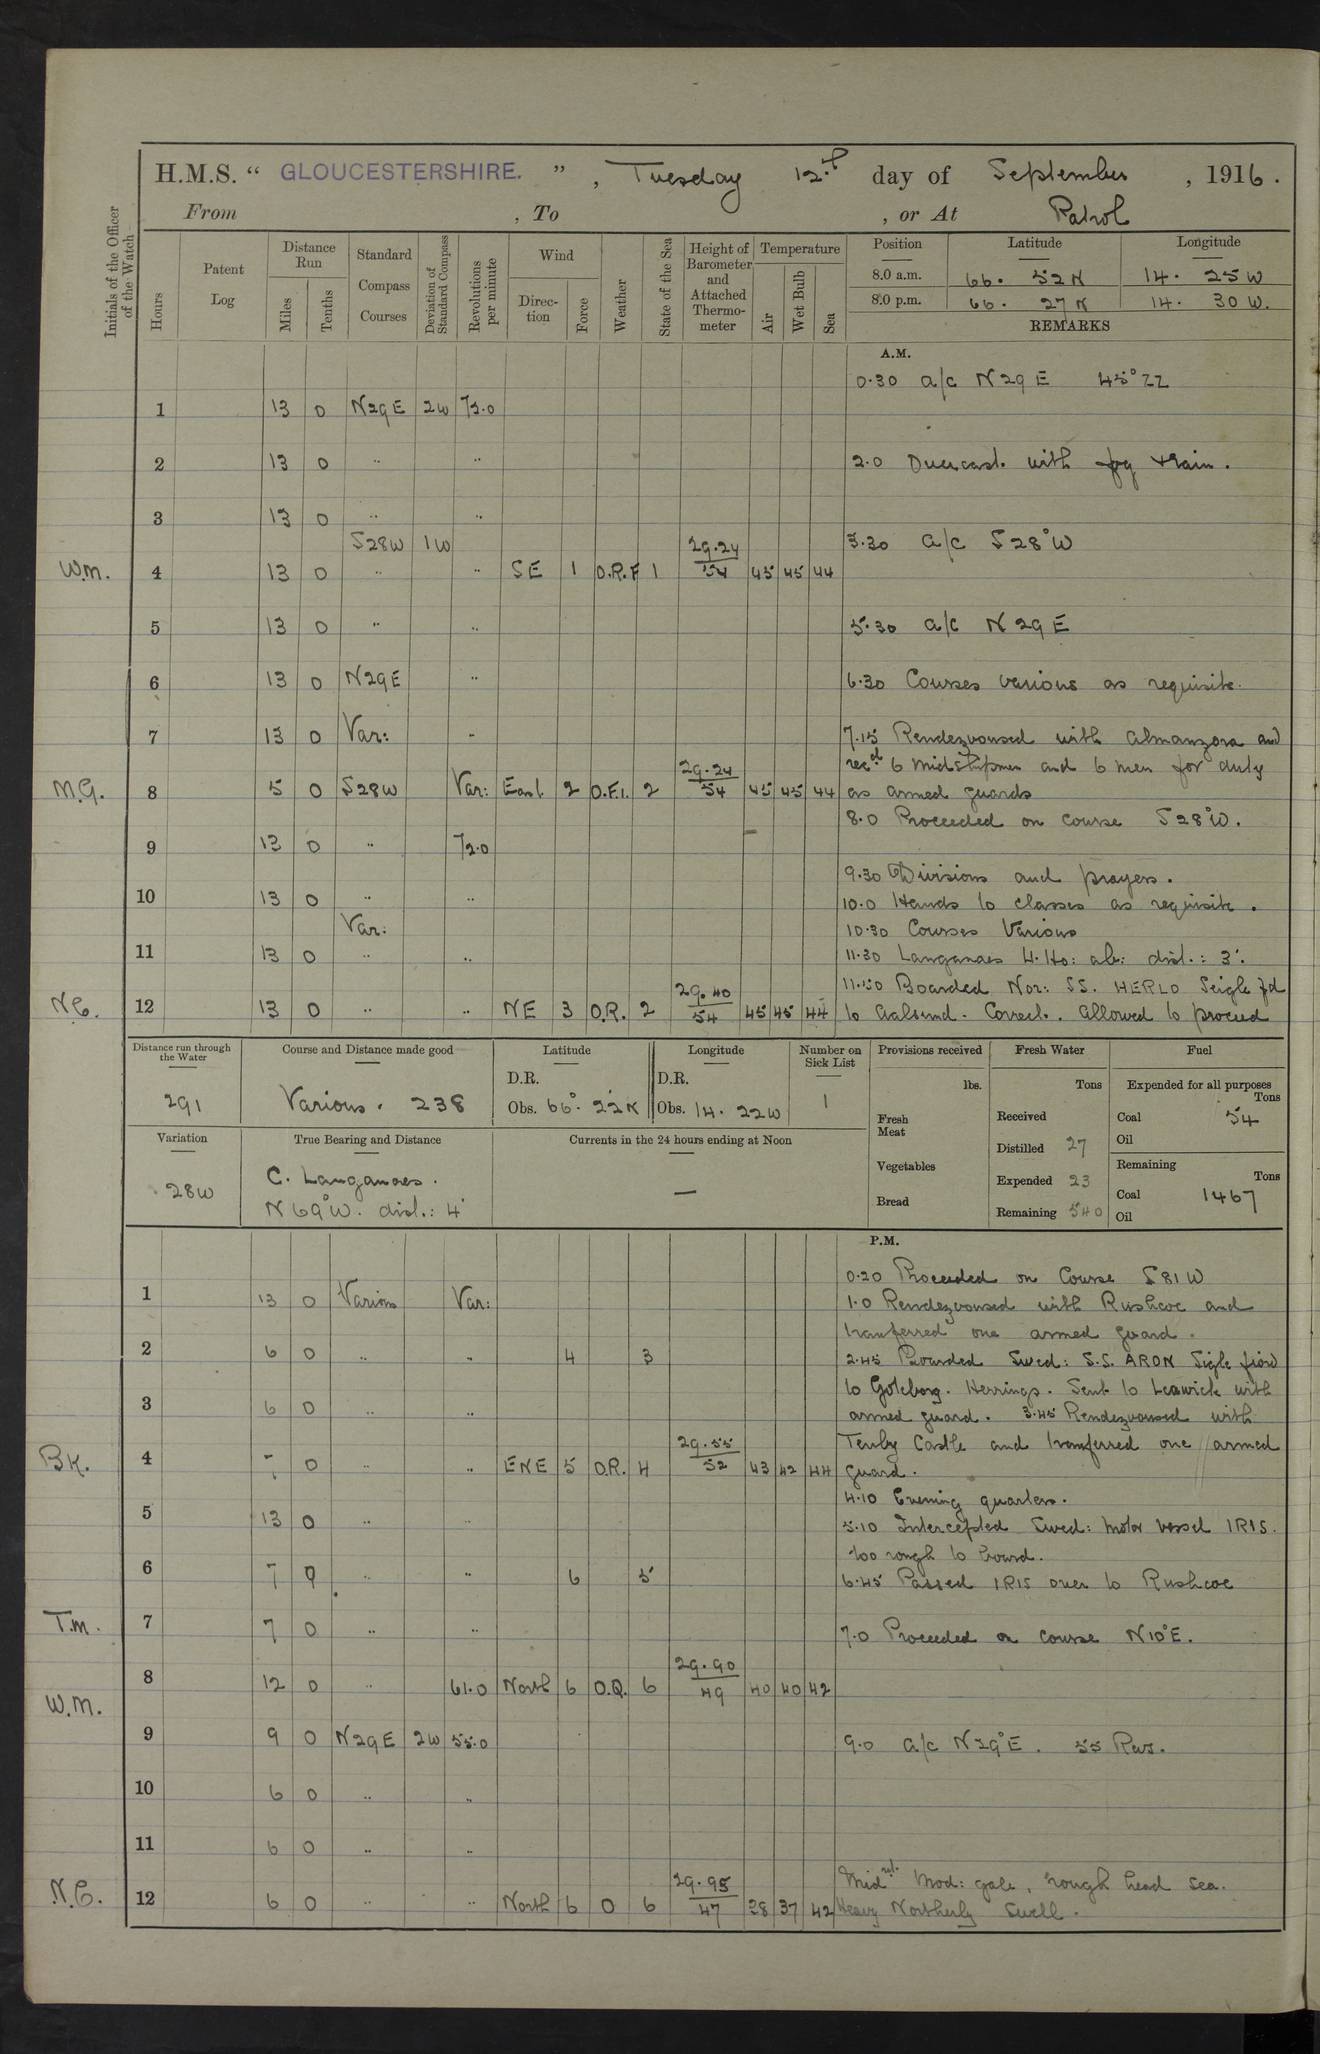 H.M.S. “ GLOUCESTERSHIRE. ” , Tuesday 12th day of September , 1916.
From , To , or At Patrol
Initials of the Officer of the Watch
Hours
Patent Log
Distance Run
Miles
Tenths
Standard Compass Courses
Deviation of Standard Compass
Revolutions per minute
Wind
Direction
Force
Weather
State of the Sea
Height of Barometer and Attached Thermometer
Temperature
Air
Wet Bulb
Sea
Position Latitude Longitude
8.0 a.m. 66. 52 N 14. 25 W
8.0 p.m. 66. 27 N 14. 30 W.
REMARKS
A.M.
0.30 a/c N29E 45° ZZ
1 13 0 N29E 2W 72.0
2 13 0 " " 2.0 Overcast with fog & rain.
3 13 0 " "
S28W 1W 29.24 3.30 a/c S28°W
W.M. 4 13 0 " " SE 1 O.R.F 1 54 45 45 44
5 13 0 " " 5.30 a/c N29E
6 13 0 N29E " 6.30 Courses various as requisite.
7 13 0 Var: " 7.15 Rendezvoused with Almanzora and
29.24 recd 6 midshipmen and 6 men for duty
M.G. 8 5 0 S28W Var: East 2 O.F.1. 2 54 45 45 44 as armed guards
8.0 Proceeded on course S28°W.
9 13 0 " 72.0
9.30 Divisions and prayers.
10 13 0 " " 10.0 Hands to classes as requisite.
Var: 10.30 Courses Various
11 13 0 " " 11.30 Langanaes L. Ho: ab: dist.: 3'.
29.40 11.50 Boarded Nor: SS. HERLO Seigle fd
N.C. 12 13 0 " " NE 3 O.R. 2 54 45 45 44 to Aalsund. Correct. Allowed to proceed
Distance run through the Water
291
Course and Distance made good
Various. 238
Latitude
D.R.
Obs. 66°. 22'N
Longitude
D.R.
Obs. 14. 22W
Number on Sick List
1
Provisions received
lbs.
Fresh Meat
Vegetables
Bread
Fresh Water
Tons
Received
Distilled 27
Expended 23
Remaining 540
Fuel
Expended for all purposes
Tons
Coal 54
Oil
Remaining
Tons
Coal 1467
Oil
Variation
28W
True Bearing and Distance
C. Langanaes.
N69°W. dist.: 4'
Currents in the 24 hours ending at Noon
—
P.M.
0.20 Proceeded on Course S81W
1 13 0 Various Var: 1.0 Rendezvoused with Rushcoe and
transferred one armed guard.
2 6 0 " " 4 3 2.45 Boarded Swed: S.S. ARON Sigle fiord
to Goteborg. Herrings. Sent to Lerwick with
3 6 0 " " armed guard. 3.45 Rendezvoused with
29.55 Tenby Castle and transferred one armed
BK. 4 7 0 " " ENE 5 O.R. 4 52 43 42 44 guard.
4.10 Evening quarters.
5 13 0 " " 5.10 Intercepted Swed: motor vessel IRIS.
too rough to board.
6 7 0 " " 6 5 6.45 Passed IRIS over to Rushcoe
T.M. 7 7 0 " " 7.0 Proceeded on course N10°E.
29.90
8 12 0 " 61.0 North 6 O.Q. 6 49 40 40 42
W.M.
9 9 0 N29E 2W 55.0 9.0 a/c N29°E. 55 Revs.
10 6 0 " "
11 6 0 " "
29.95 Midnt. Mod: gale, rough head sea.
N.C. 12 6 0 " " North 6 O 6 47 38 37 42 Heavy Northerly Swell.